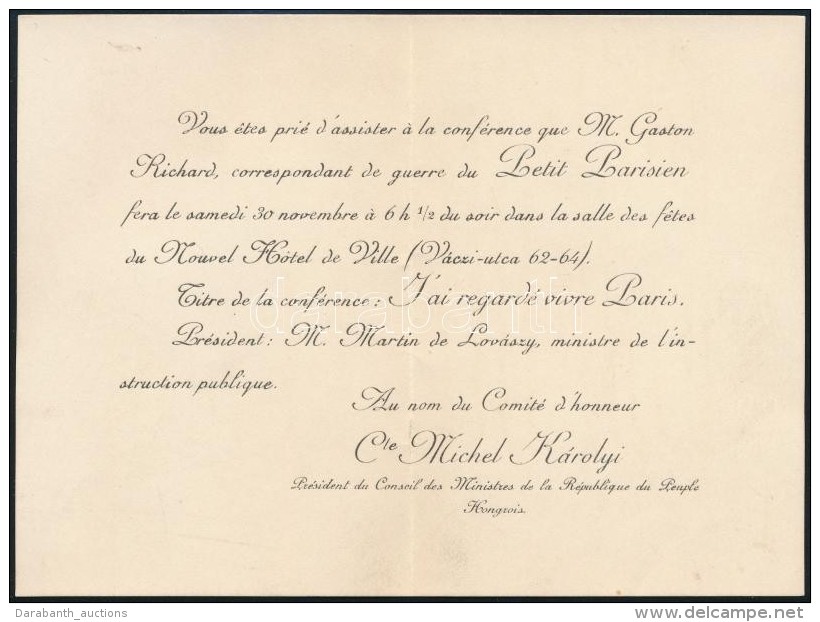 Vous êtes prié d'assister à la conférence que M. Gaston
Richard, correspondant de guerre du Petit Parisien
fera le samedi 30 novembre à 6 h 1/2 du soir dans la salle des fêtes
du Nouvel Hôtel de Ville (Váczi-utca 62-64).
Titre de la conférence: J'ai regardé vivre Paris.
darabanth
Président: M. Martin de Lovászy, ministre de l'in-
struction publique.
Au nom du Comité d'honneur
Cte Michel Károlyi
Président du Conseil des Ministres de la République du Peuple
Hongrois.
Darabanth_auctions
delcampe.net